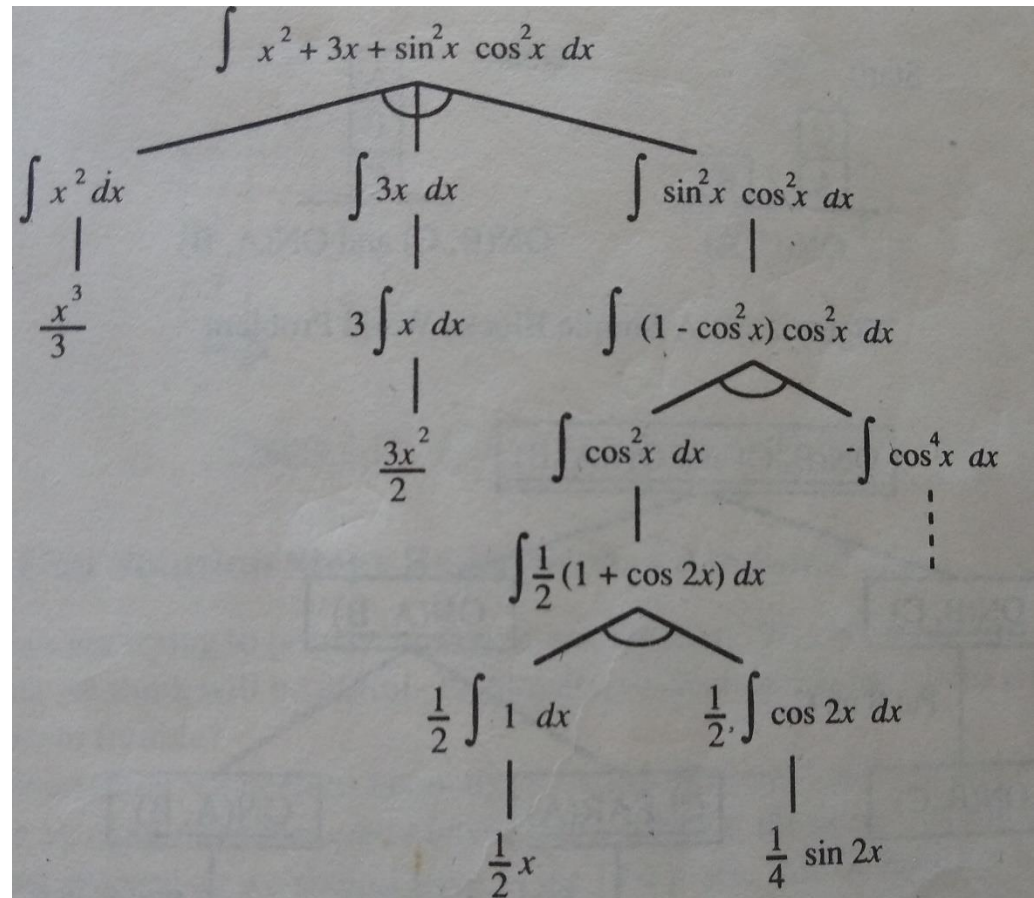 ∫ x² + 3x + sin²x cos²x dx
∫ x² dx ∫ 3x dx ∫ sin²x cos²x dx
x³/3 3 ∫ x dx ∫ (1 - cos²x) cos²x dx
3x²/2 ∫ cos²x dx -∫ cos⁴x dx
∫ 1/2 (1 + cos 2x) dx
1/2 ∫ 1 dx 1/2 ∫ cos 2x dx
1/2 x 1/4 sin 2x